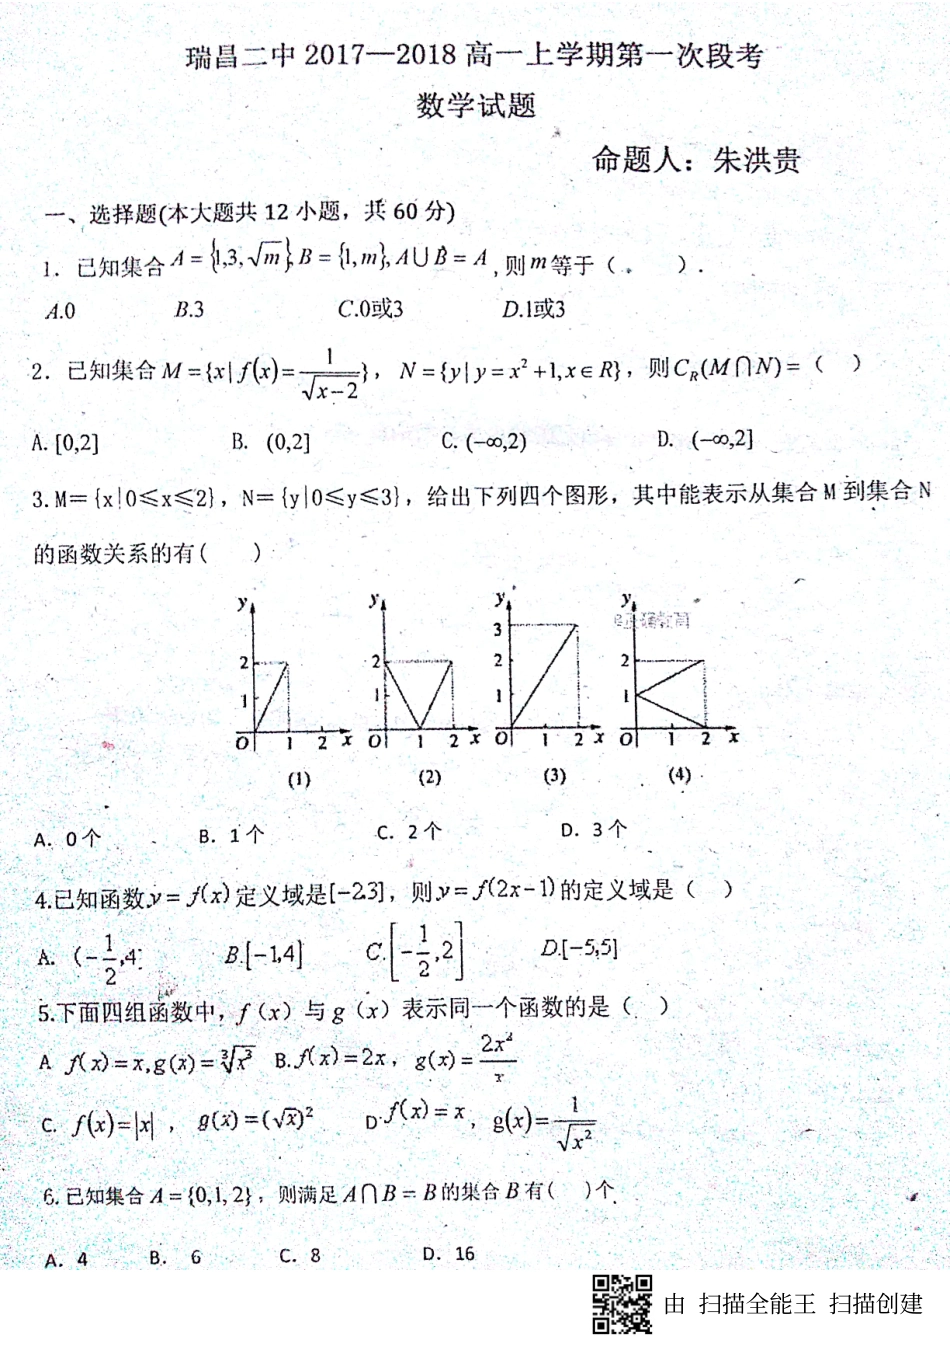 瑞昌二中 2017—2018 高一上学期第一次段考
数学试题
命题人：朱洪贵
一、选择题(本大题共 12 小题，共 60 分)
1．已知集合 A = {1,3,√m}, B = {1,m}, A∪B = A ,则 m 等于（ ）.
A.0 B.3 C.0或3 D.1或3
2．已知集合 M = {x | f(x) = 1/√(x−2)}， N = {y | y = x²+1, x∈R}，则 C_R(M∩N) =（ ）
A. [0,2] B. (0,2] C. (−∞,2) D. (−∞,2]
3. M＝{x|0≤x≤2}，N＝{y|0≤y≤3}，给出下列四个图形，其中能表示从集合 M 到集合 N
的函数关系的有( )
y y y y
3
2 2 2 2
1 1 1 1
O 1 2 x O 1 2 x O 1 2 x O 1 2 x
(1) (2) (3) (4)
A．0个 B．1个 C．2个 D．3个
4.已知函数 y = f(x) 定义域是[−2,3]，则 y = f(2x−1) 的定义域是（ ）
A. (−1/2,4] B.[−1,4] C.[−1/2,2] D.[−5,5]
5.下面四组函数中，f（x）与 g（x）表示同一个函数的是（ ）
A f(x) = x, g(x) = ∛x³ B. f(x) = 2x， g(x) = 2x²/x
C. f(x) = |x|， g(x) = (√x)² D. f(x) = x， g(x) = 1/√x²
6. 已知集合 A = {0,1,2}，则满足 A∩B = B 的集合 B 有( )个.
A．4 B． 6 C．8 D．16
由 扫描全能王 扫描创建